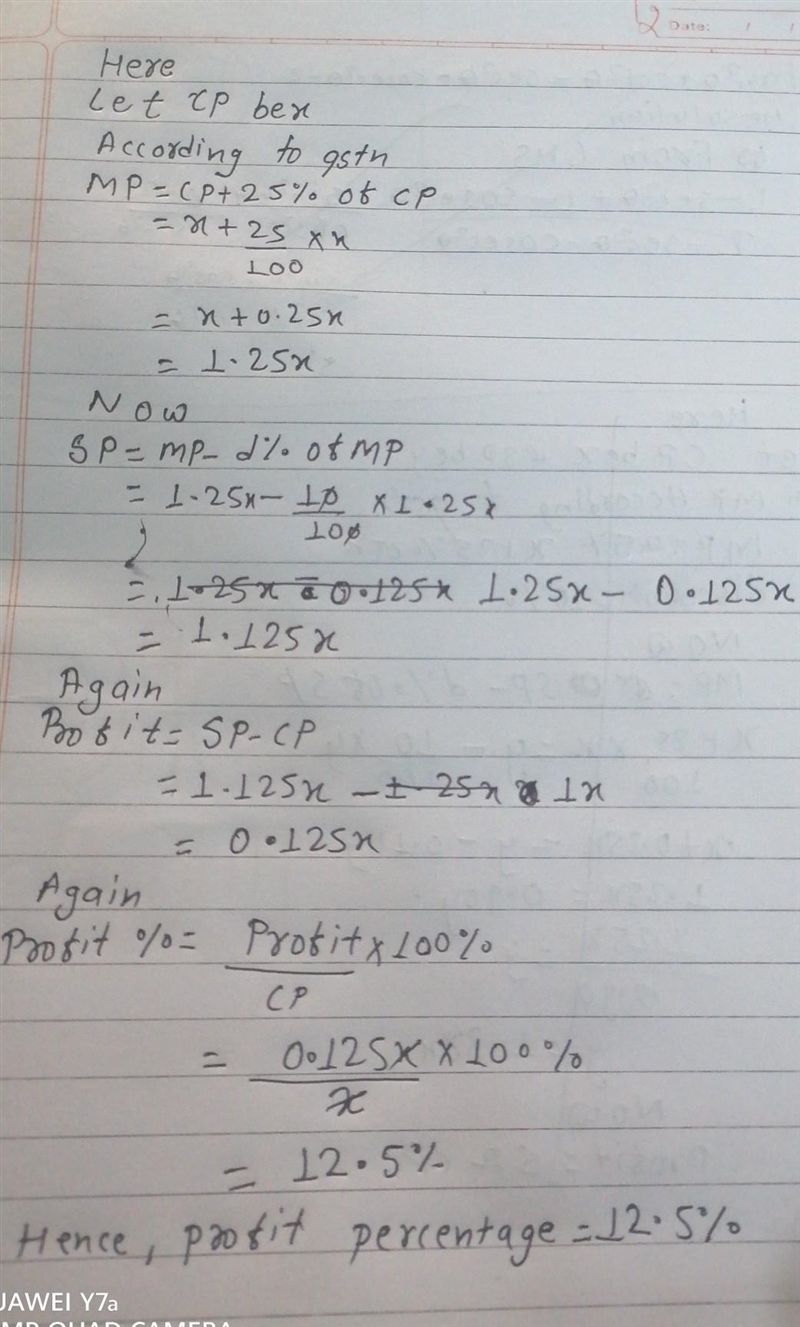 Date: / /
Here
Let CP be x
According to qstn
MP = CP + 25% of CP
= x + 25/100 × x
= x + 0.25x
= 1.25x
Now
SP = MP - d% of MP
= 1.25x - 10/100 × 1.25x
= 1.25x - 0.125x 1.25x - 0.125x
= 1.125x
Again
Profit = SP - CP
= 1.125x - 1.25x 1x
= 0.125x
Again
Profit % = Profit/CP × 100%
= 0.125x/x × 100%
= 12.5%
Hence, profit percentage = 12.5%
UAWEI Y7a